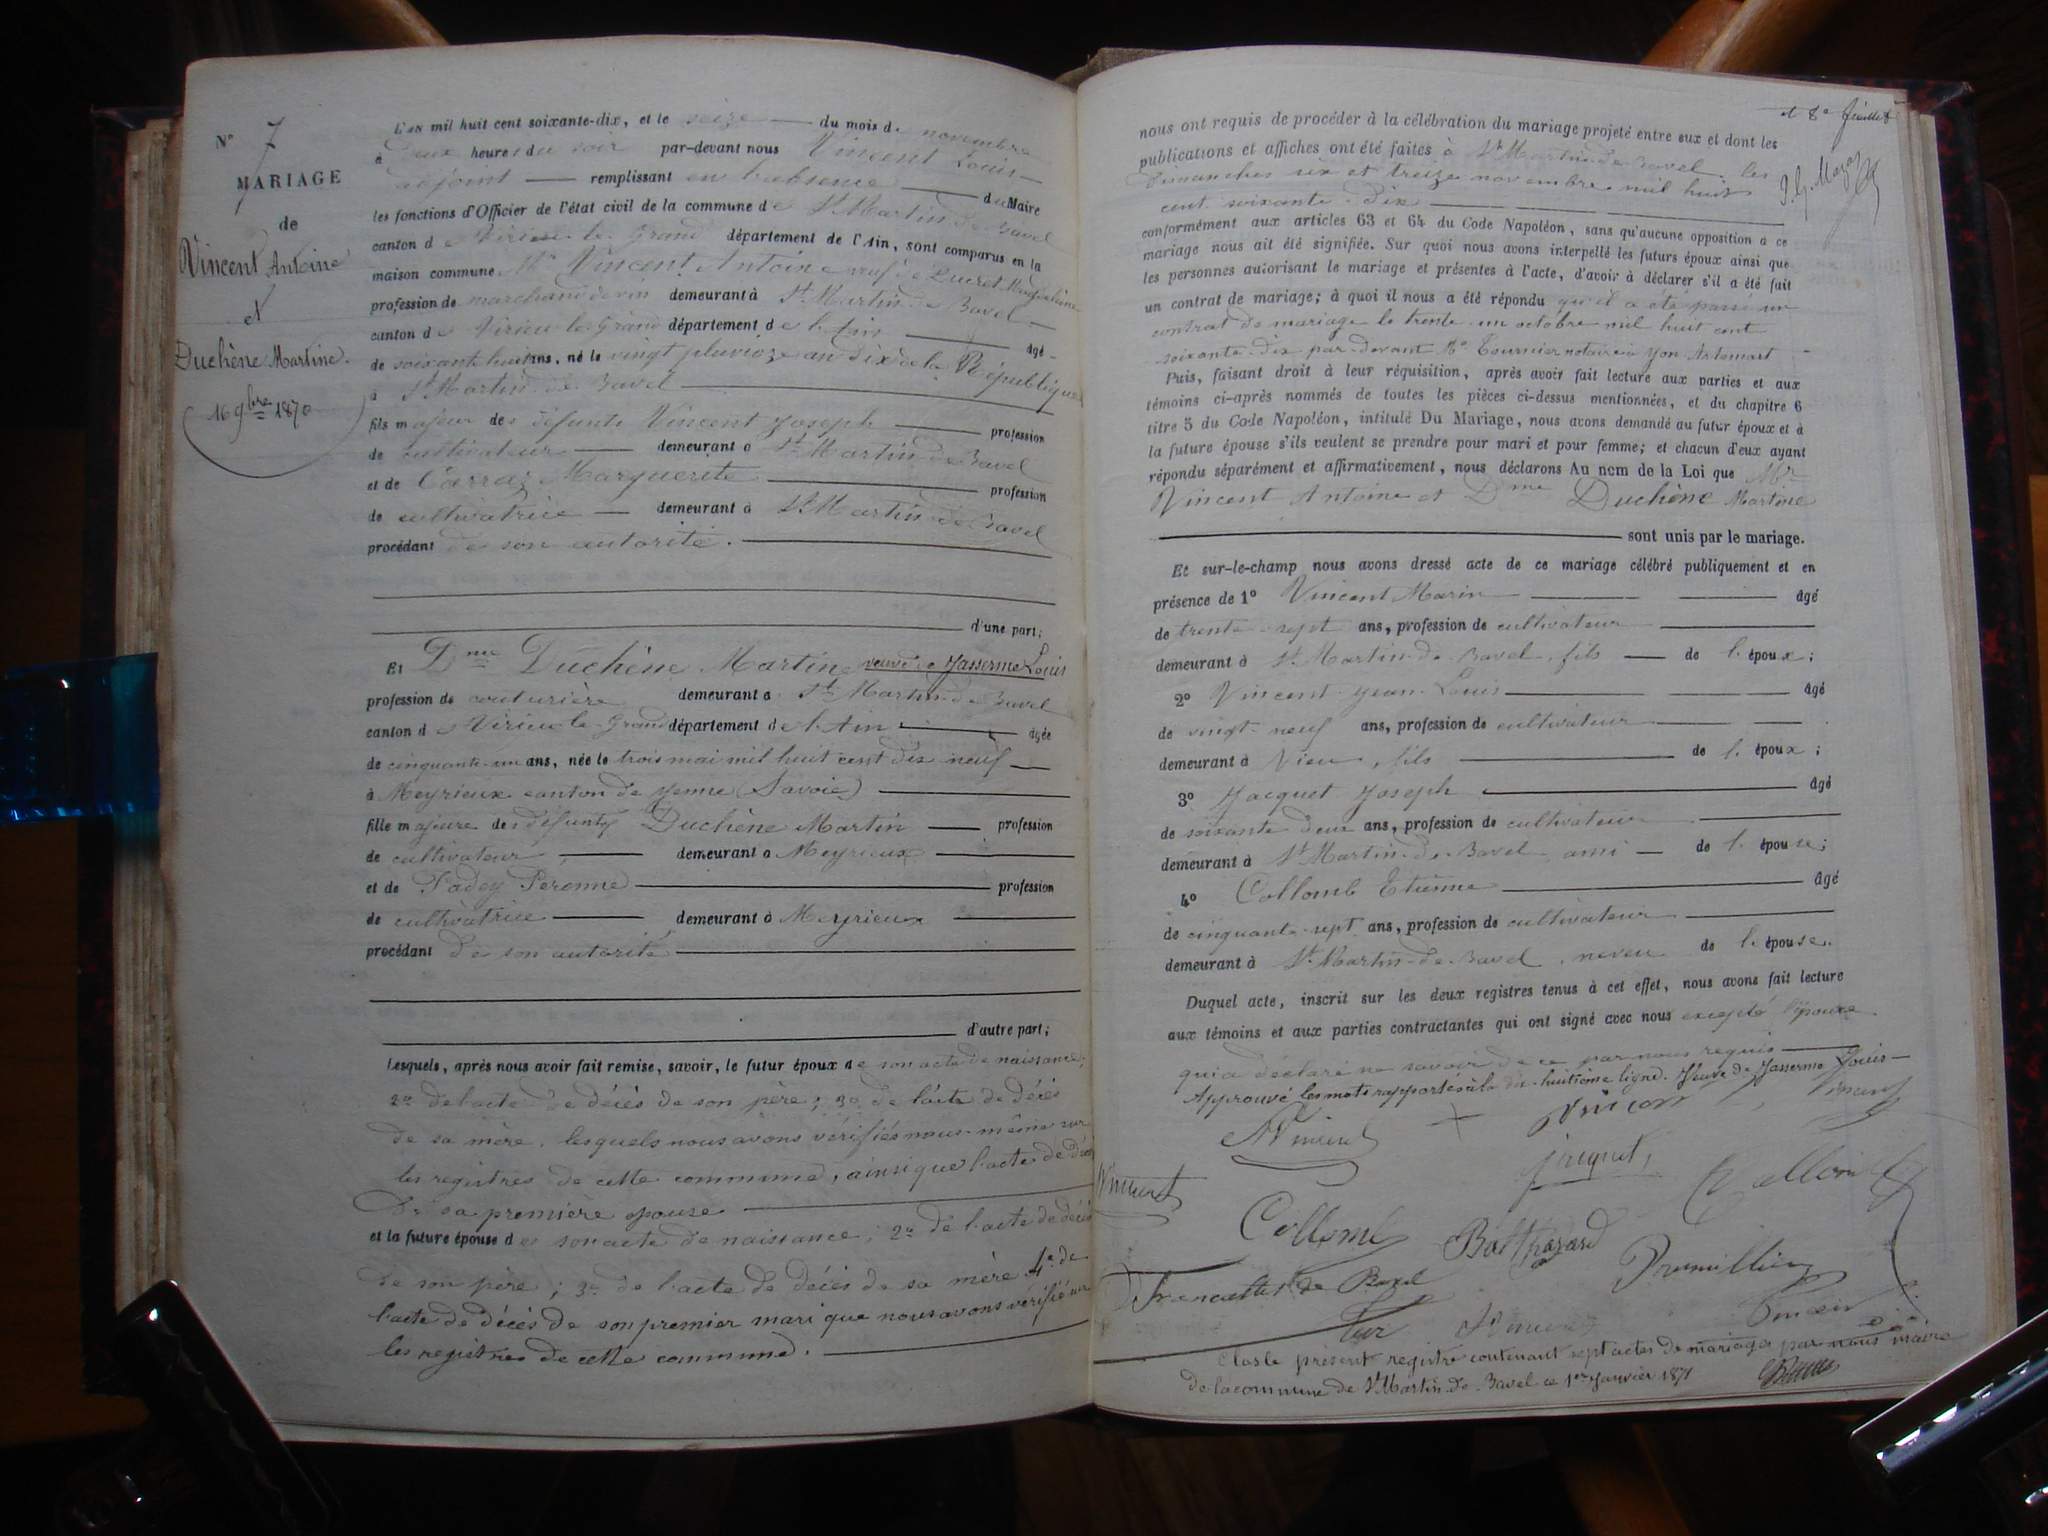 N° 7
MARIAGE
de
Vincent Antoine
et
Duchêne Martine.
16 9bre 1870
L'AN mil huit cent soixante-dix, et le seize du mois de novembre
à deux heures du soir par-devant nous Vincent Louis
adjoint remplissant en l'absence du Maire
les fonctions d'Officier de l'état civil de la commune de St Martin de Bavel
canton de Virieu le Grand département de l'Ain, sont comparus en la
maison commune Mr Vincent Antoine veuf de Lucret Magdeleine
profession de marchand de vin demeurant à St Martin de Bavel
canton de Virieu le Grand département de l'Ain âgé
de soixante huit ans, né le vingt pluvioze an dix de la République
à St Martin de Bavel
fils majeur des défunts Vincent Joseph profession
de cultivateur demeurant à St Martin de Bavel
et de Carraz Marguerite profession
de cultivatrice demeurant à St Martin de Bavel
procédant de son autorité.
d'une part;
Et Dme Duchêne Martine veuve de Jasserme Louis
profession de couturière demeurant à St Martin de Bavel
canton de Virieu le Grand département de l'Ain âgée
de cinquante-un ans, née le trois mai mil huit cent dix neuf
à Meyrieux canton de Yenne (Savoie)
fille majeure des défunts Duchêne Martin profession
de cultivateur demeurant à Meyrieux
et de Padey Peronne profession
de cultivatrice demeurant à Meyrieux
procédant de son autorité
d'autre part;
Lesquels, après nous avoir fait remise, savoir, le futur époux de son acte de naissance;
2° de l'acte de décès de son père; 3° de l'acte de décès
de sa mère, lesquels nous avons vérifiés nous-même sur
les registres de cette commune, ainsi que l'acte de décès
de sa première épouse
et la future épouse de son acte de naissance; 2° de l'acte de décès
de son père; 3° de l'acte de décès de sa mère 4° de
l'acte de décès de son premier mari que nous avons vérifié sur
les registres de cette commune.
et 8e feuillet
nous ont requis de procéder à la célébration du mariage projeté entre eux et dont les
publications et affiches ont été faites à St Martin-de-Bavel, les
dimanches six et treize novembre mil huit
cent soixante-dix
conformément aux articles 63 et 64 du Code Napoléon, sans qu'aucune opposition à ce
mariage nous ait été signifiée. Sur quoi nous avons interpellé les futurs époux ainsi que
les personnes autorisant le mariage et présentes à l'acte, d'avoir à déclarer s'il a été fait
un contrat de mariage; à quoi il nous a été répondu qu'il a été passé un
contrat de mariage le trente-un octobre mil huit cent
soixante-dix par-devant Me Tournier notaire à Artemart
Puis, faisant droit à leur réquisition, après avoir fait lecture aux parties et aux
témoins ci-après nommés de toutes les pièces ci-dessus mentionnées, et du chapitre 6
titre 5 du Code Napoléon, intitulé Du Mariage, nous avons demandé au futur époux et à
la future épouse s'ils veulent se prendre pour mari et pour femme; et chacun d'eux ayant
répondu séparément et affirmativement, nous déclarons Au nom de la Loi que Mr
Vincent Antoine et Dme Duchêne Martine
sont unis par le mariage.
Et sur-le-champ nous avons dressé acte de ce mariage célébré publiquement et en
présence de 1° Vincent Marin âgé
de trente-sept ans, profession de cultivateur
demeurant à St Martin-de-Bavel, fils de l'époux;
2° Vincent Jean-Louis âgé
de vingt-neuf ans, profession de cultivateur
demeurant à Vieu, fils de l'époux;
3° Jacquet Joseph âgé
de soixante deux ans, profession de cultivateur
demeurant à St Martin-de-Bavel ami de l'épouse;
4° Collomb Etienne âgé
de cinquante-sept ans, profession de cultivateur
demeurant à St Martin-de-Bavel, neveu de l'épouse.
Duquel acte, inscrit sur les deux registres tenus à cet effet, nous avons fait lecture
aux témoins et aux parties contractantes qui ont signé avec nous excepté l'épouse
qui a déclaré ne savoir de ce par nous requis
Approuvé les mots rapportés à la dix-huitième ligne. Veuve de Jasserme Louis
Vincent
Vincent
jaquet
Collomb
Balthazard
Francallet de Bavel
Clos le présent registre contenant sept actes de mariage par nous maire
de la commune de St Martin-de-Bavel ce 1er Janvier 1871